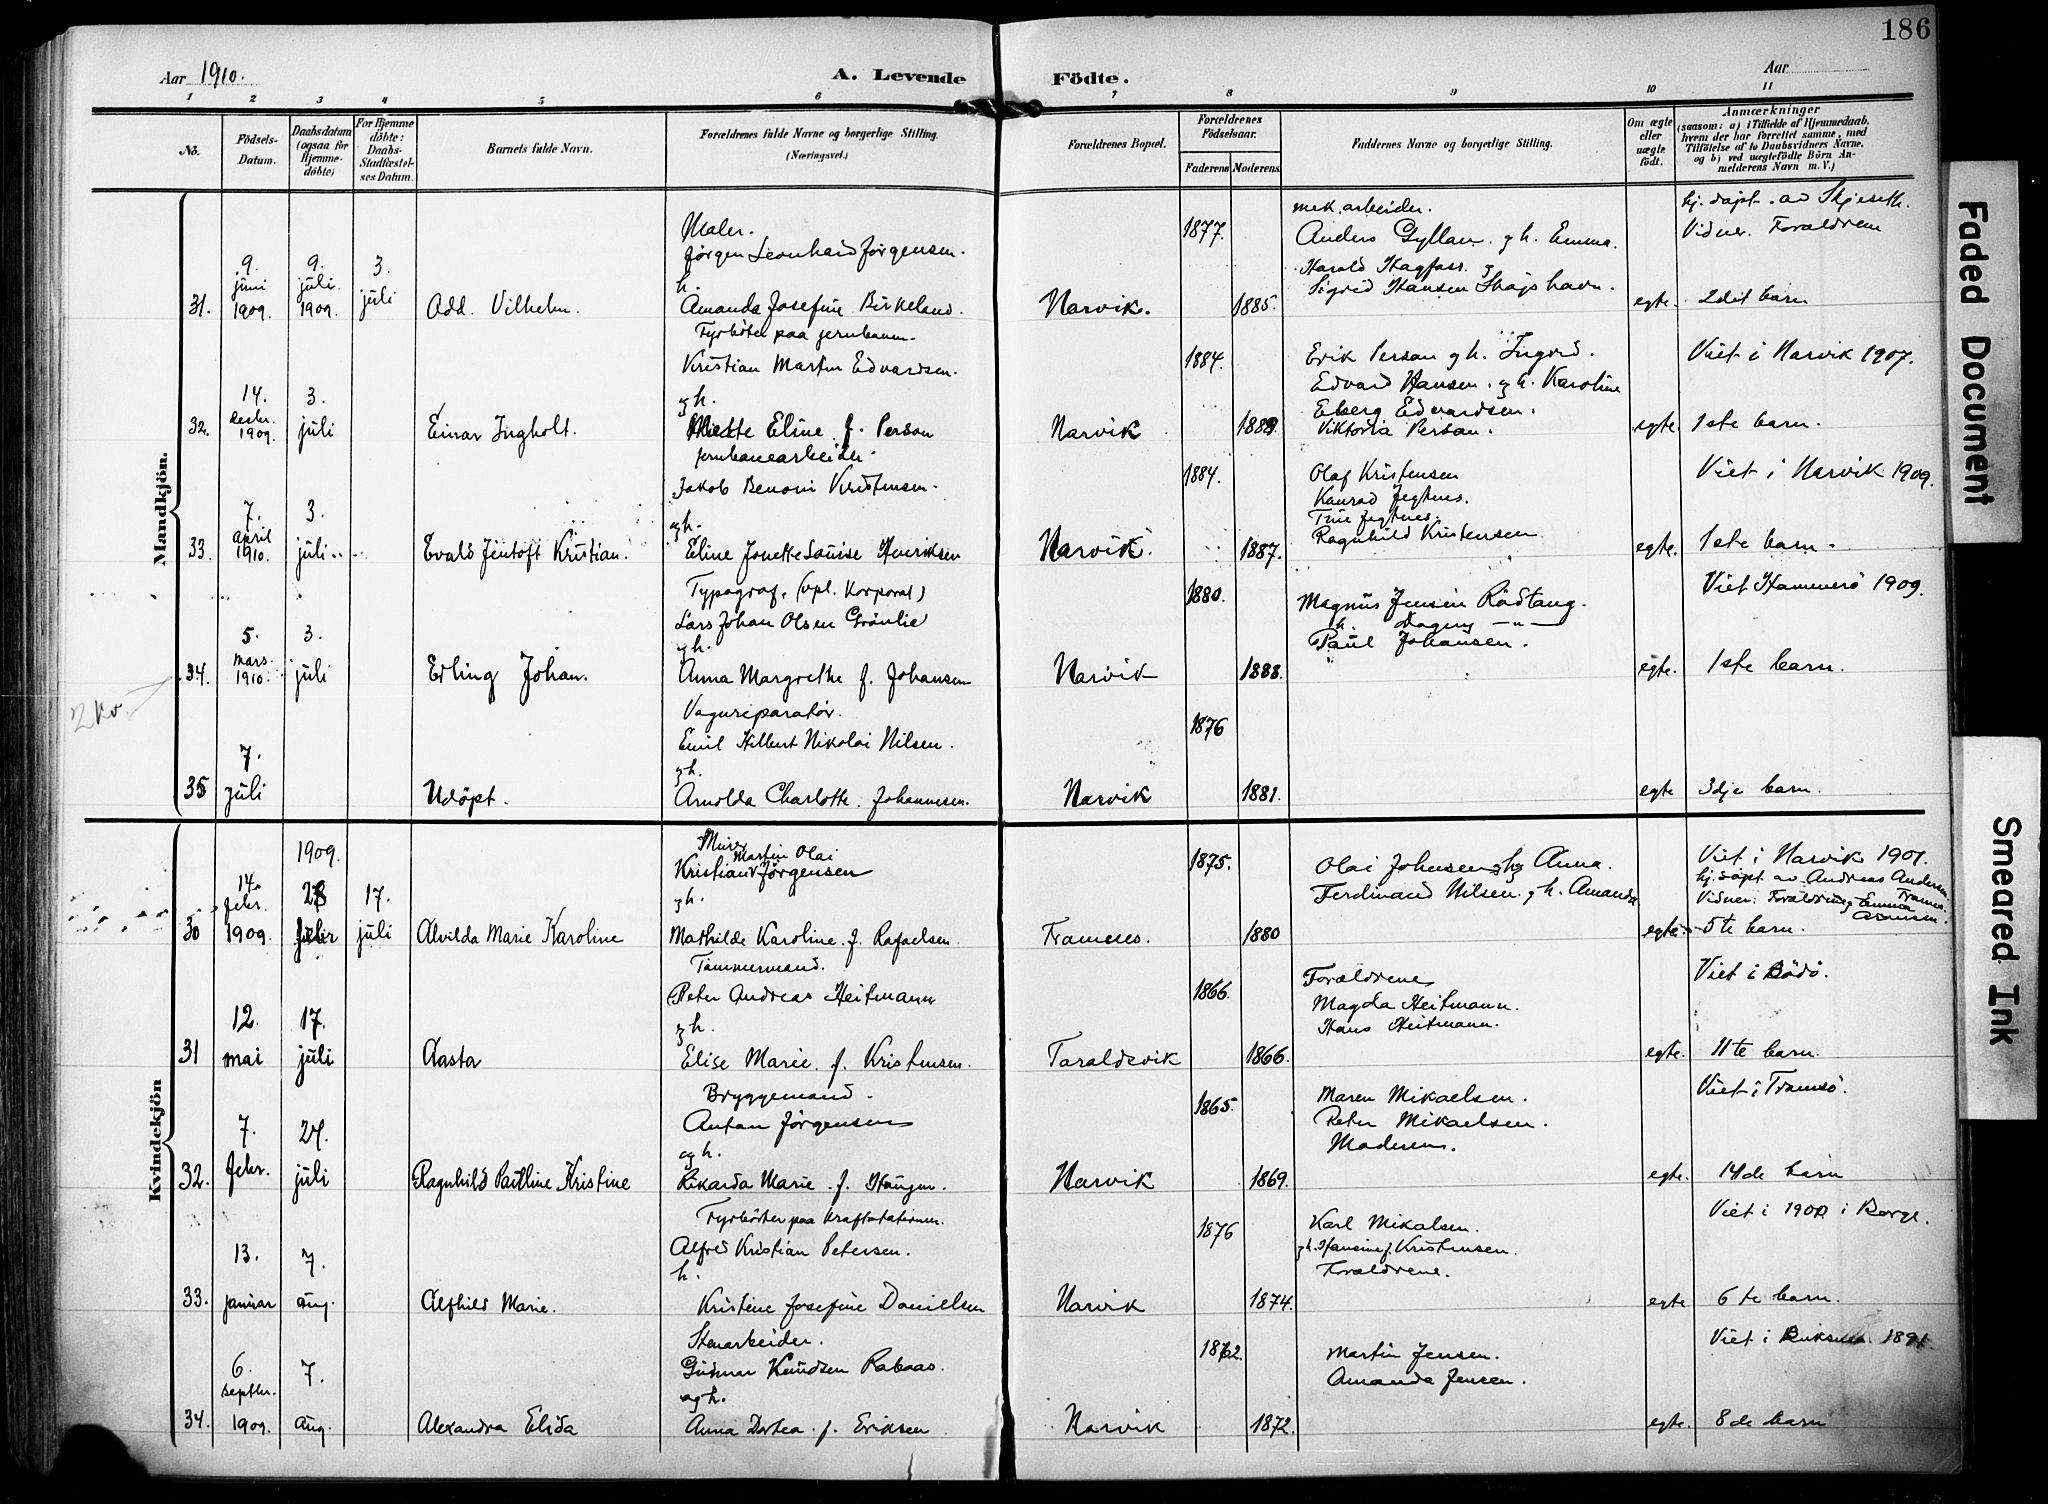 186
Aar 1910.
A. Levende Födte.
Aar
1 2 3 4 5 6 7 8 9 10 11
No.
Födsels-Datum.
Daabsdatum (ogsaa for Hjemme-döbte)
For Hjemme döbte: Daabs-Stadfæstel-ses Datum.
Barnets fulde Navn.
Forældrenes fulde Navne og borgerlige Stilling. (Næringsvei.)
Forældrenes Bopæl.
Forældrenes Födselsaar.
Faderens Moderens
Faddernes Navne og borgerlige Stilling.
Om ægte eller uægte födt.
Anmærkninger
(saasom: a) i Tilfælde af Hjemmedaab,
hvem der har forrettet samme, med
Tilföielse af to Daabsvidners Navne.
og b) ved uægtefödte Börn An-
melderens Navn m. V.)
Mandkjön.
Maler.
1877.
mek. arbeider.
hj. döpt. av Skjeseth.
Jørgen Leonhard Jørgensen.
Anders Gyllan. g h. Emma.
Vidner. Forældrene
9. juni 1909.
9. juli. 1909.
3. juli
h.
Harald Hagfors. g
Sigrid Hansen
31. Odd. Vilhelm. Amanda Josefine Birkeland. Narvik. 1885. egte. 2det barn
Fyrbøter paa jernbanen.
Kristian Martin Edvardsen.
1884.
Erik Persan g h. Ingrid.
Edvard Hansen. g h. Karoline
Viet i Narvik 1907.
14. desbr. 1909.
3. juli
g h.
Edvardsen.
32. Einar Ingholt. Eline f. Person Narvik Viktoria Persan. egte. 1ste barn.
jernbanearbeider.
Jakob Benoni Kristensen.
1884.
Olaf Kristensen
Konrad Jegtnes.
Trine Jegtnes.
Viet i Narvik 1909.
7. april 1910.
3. juli
og h.
33. Evald Jentoft Kristian. Eline Jonette Louise Henriksen Narvik. 1887. Ragnhild Kristensen egte. 1ste barn.
Typograf. (vpl. Korporal)
Lars Johan Olsen Grönlie
1880.
Magnus Jensen Rödtang.
h. Dagny — " —
Paul Johansen.
Viet Hammerö 1909.
5. mars. 1910.
3. juli
g h.
34. Erling Johan. Anna Margrethe f. Johansen Narvik 1888. egte. 1ste barn.
2 kv.
Vognreparatör.
1876
Emil Hilbert Nikolai Nilsen.
7. juli
g h.
35 Udöpt. Arnolda Charlotte. Johannesen. Narvik 1881. egte 3dje barn.
Kvindekjön
Murer
Martin Olai
Kristian Jørgensen
1909.
1875.
Olai Johansen og h Anna.
Ferdinand Nilsen. g h. Amanda
Viet i Narvik 1901.
hj. döpt av Andreas Andersen
Vidner: Forældrene g Emma
14. febr. 1909.
28 febr
17. juli
g h.
30 Alvilda Marie Karoline Mathilde Karoline. f. Rafaelsen. 1880 egte. 5te barn.
Tømmermand.
Peter Andreas Heitmann
1866.
Forældrene
Magda Heitmann.
Hans Heitmann.
Viet i Bödö.
12. mai
17. juli
g h.
31 Aasta Elise Marie. f. Kristensen. Taraldsvik 1866. egte. 11te barn.
Bryggemand.
Anton Jørgensen
1865.
Maren Mikaelsen.
Peter Mikaelsen.
Moderen.
Viet i Tromsö.
7. febr.
24. juli
og h.
32. Ragnhild Pauline Kristine Rikarda Marie. f. Haugen. Narvik 1869. egte. 14de barn
Fyrbøter paa kraftstationen.
Alfred Kristian Petersen.
1876
Karl Mikalsen.
g h. Hansine f. Kristensen.
Forældrene.
Viet i 1900 i Borge.
13. januar
7. aug.
h.
33. Alfhild Marie. Kristine Josefine Danielsen Narvik 1874. egte 6te barn.
Stenarbeider.
Gudmar Knudsen Rabaas.
1862.
Martin Jensen.
Amanda Jensen.
Viet i Buksnes 1891.
6. septbr. 1909.
7. aug.
og h.
34. Alexandra Elida Anna Dortea. f. Eriksen Narvik 1872. egte. 8de barn
Faded Document
Smeared Ink